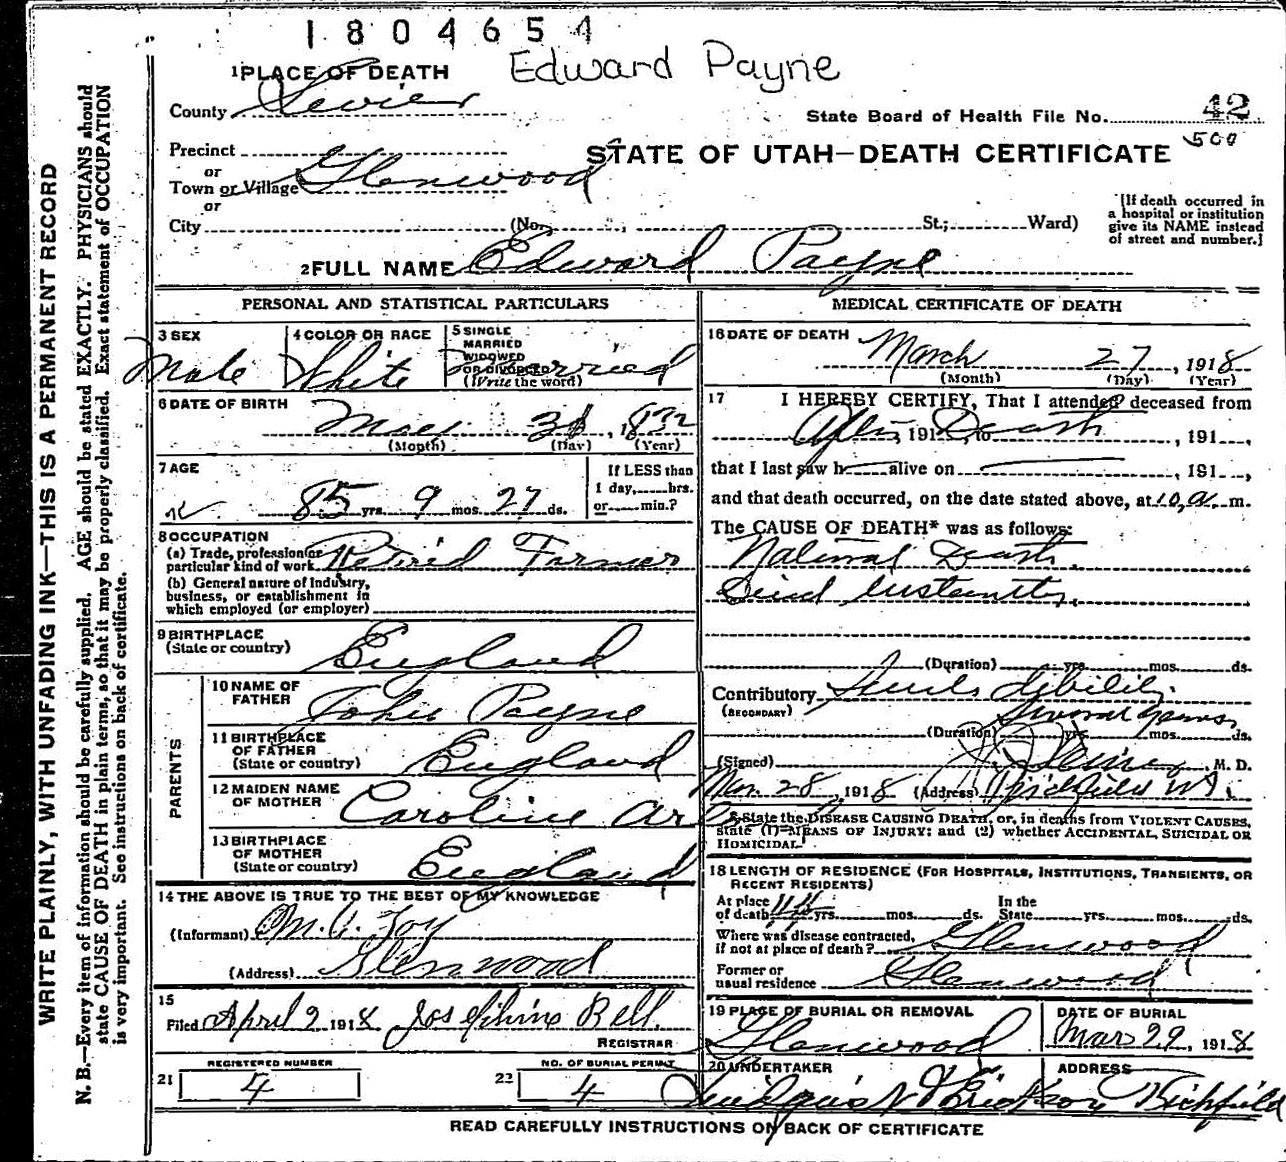 1804654
Edward Payne
1 PLACE OF DEATH
County Sevier
State Board of Health File No. 42
500
Precinct
or
Town or Village Glenwood
or
City (No. St.; Ward)
STATE OF UTAH—DEATH CERTIFICATE
[If death occurred in
a hospital or institution
give its NAME instead
of street and number.]
2 FULL NAME Edward Payne
PERSONAL AND STATISTICAL PARTICULARS
3 SEX
Male
4 COLOR OR RACE
White
5 SINGLE
MARRIED
WIDOWED
OR DIVORCED
(Write the word)
Married
6 DATE OF BIRTH
31, 1832
(Month) (Day) (Year)
7 AGE
85 yrs. 9 mos. 27 ds.
If LESS than
1 day, hrs.
or min.?
8 OCCUPATION
(a) Trade, profession or
particular kind of work Retired Farmer
(b) General nature of Industry,
business, or establishment in
which employed (or employer)
9 BIRTHPLACE
(State or country)
England
PARENTS
10 NAME OF
FATHER
John Payne
11 BIRTHPLACE
OF FATHER
(State or country)
England
12 MAIDEN NAME
OF MOTHER
Caroline
13 BIRTHPLACE
OF MOTHER
(State or country)
England
14 THE ABOVE IS TRUE TO THE BEST OF MY KNOWLEDGE
(Informant)
(Address) Glenwood
15
Filed April 2 1918 Josephine Bell
REGISTRAR
REGISTERED NUMBER
21 4
NO. OF BURIAL PERMIT
22 4
MEDICAL CERTIFICATE OF DEATH
16 DATE OF DEATH
March 27, 1918
(Month) (Day) (Year)
17 I HEREBY CERTIFY, That I attended deceased from
After, 191 , to Death, 191 ,
that I last saw h alive on , 191 ,
and that death occurred, on the date stated above, at 10 a. m.
The CAUSE OF DEATH* was as follows:
Natural Death
Died
(Duration) yrs. mos. ds.
Contributory Senile debility
(SECONDARY)
Several years
(Duration) yrs. mos. ds.
(Signed) M. D.
Mar. 28, 1918 (Address) Richfield Ut.
* State the DISEASE CAUSING DEATH, or, in deaths from VIOLENT CAUSES,
state (1) MEANS OF INJURY: and (2) whether ACCIDENTAL, SUICIDAL OR
HOMICIDAL.
18 LENGTH OF RESIDENCE (FOR HOSPITALS, INSTITUTIONS, TRANSIENTS, OR
RECENT RESIDENTS)
At place In the
of death 44 yrs. mos. ds. State yrs. mos. ds.
Where was disease contracted,
if not at place of death? Glenwood
Former or
usual residence Glenwood
19 PLACE OF BURIAL OR REMOVAL
Glenwood
DATE OF BURIAL
Mar 29, 1918
20 UNDERTAKER
ADDRESS
Richfield
READ CAREFULLY INSTRUCTIONS ON BACK OF CERTIFICATE
WRITE PLAINLY, WITH UNFADING INK—THIS IS A PERMANENT RECORD
N. B.—Every item of information should be carefully supplied. AGE should be stated EXACTLY. PHYSICIANS should
state CAUSE OF DEATH in plain terms, so that it may be properly classified. Exact statement of OCCUPATION
is very important. See instructions on back of certificate.